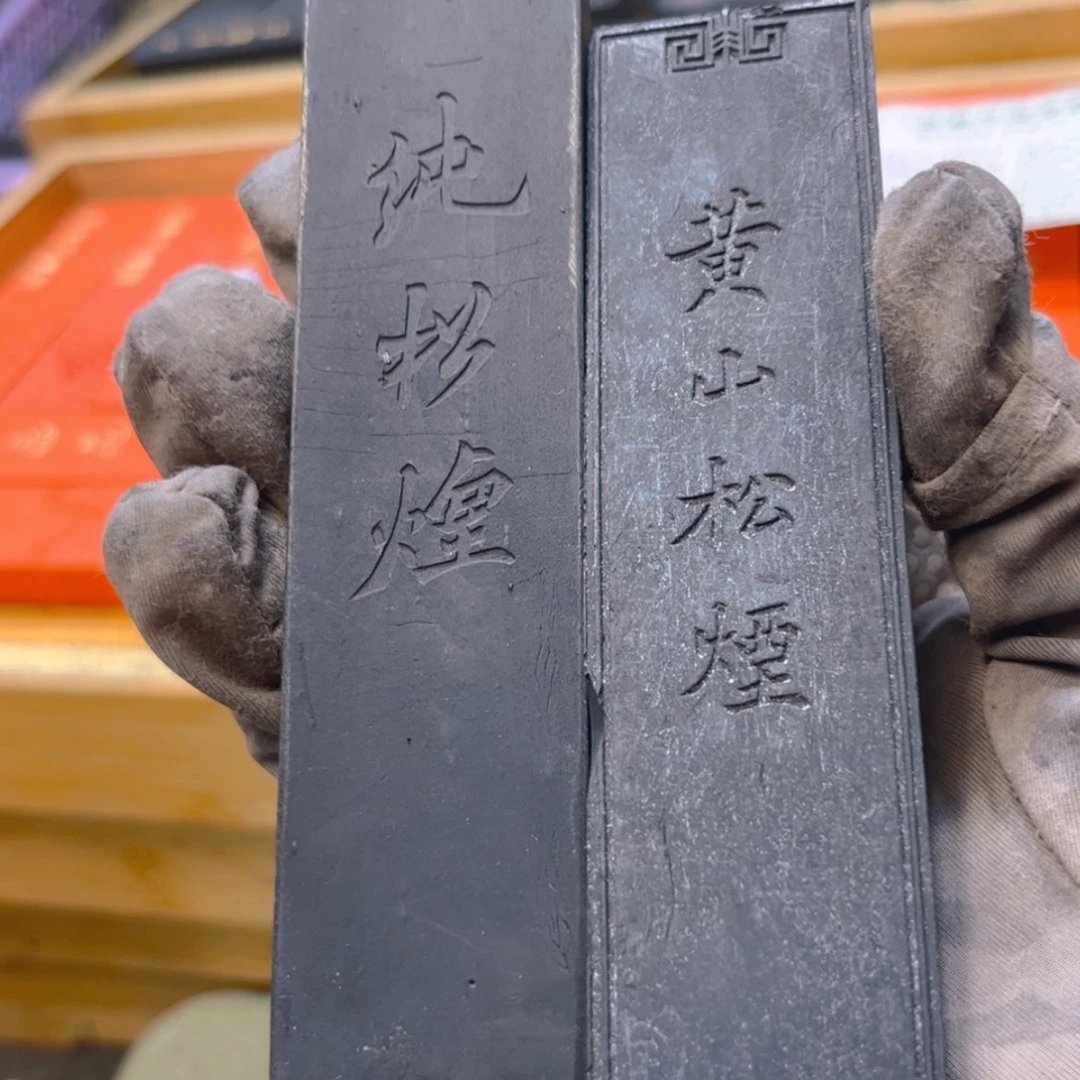 纯松煙
黄山松煙